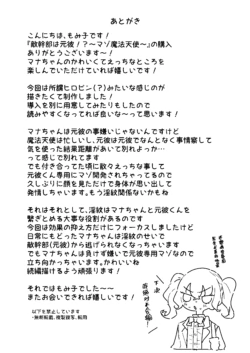 あとがき
こんにちは、もみ子です！
『敵幹部は元彼！？～マゾ魔法天使～』の購入
ありがとうございます～！
マナちゃんのかわいくてえっちなところを
楽しんでいただけていれば嬉しいです！
今回は所謂ヒロピン（？）みたいな感じのが
描きたくて制作しました！
導入を別に用意してみたりもしたので
読みやすくなってれば良いな～って思います！
マナちゃんは元彼の事嫌いじゃないんですけど
魔法天使は忙しいし、元彼は元彼でなんとなく事情察して
気を使った結果距離があいて別れよっか…
って感じで別れてます
でも付き合ってた頃に散々えっちな事して
元彼くん専用にマゾ開発されちゃってるので
久しぶりに顔を見ただけで身体が思い出して
発情しちゃいます。もう淫紋関係ないかも…
それはそれとして、淫紋はマナちゃんと元彼くんを
繋ぎとめる大事な役割があるのです
今回は効果の抑え方だけにフォーカスしましたけど
日常にもどったマナちゃんは淫紋のせいで
敵幹部（元彼）から逃げられなくなっちゃいます
でもマナちゃんは負けず嫌いで元彼専用マゾなので
立ち向かっちゃいますか。かわいいね
続編描けるよう頑張ります！
それではもみ子でした～～
またお会いできれば嬉しいです！
以下を禁止しています
・無断転載、複製頒布、転用